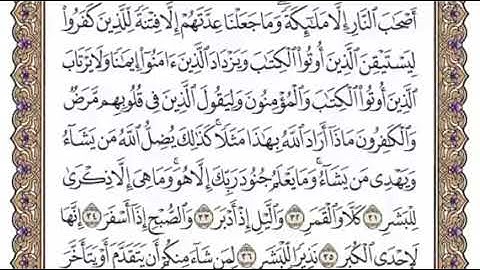 أَصْحَٰبَ ٱلنَّارِ إِلَّا مَلَٰٓئِكَةً ۙ وَمَا جَعَلْنَا عِدَّتَهُمْ إِلَّا فِتْنَةً لِّلَّذِينَ كَفَرُوا۟
لِيَسْتَيْقِنَ ٱلَّذِينَ أُوتُوا۟ ٱلْكِتَٰبَ وَيَزْدَادَ ٱلَّذِينَ ءَامَنُوٓا۟ إِيمَٰنًا ۙ وَلَا يَرْتَابَ
ٱلَّذِينَ أُوتُوا۟ ٱلْكِتَٰبَ وَٱلْمُؤْمِنُونَ ۙ وَلِيَقُولَ ٱلَّذِينَ فِى قُلُوبِهِم مَّرَضٌ
وَٱلْكَٰفِرُونَ مَاذَآ أَرَادَ ٱللَّهُ بِهَٰذَا مَثَلًا ۚ كَذَٰلِكَ يُضِلُّ ٱللَّهُ مَن يَشَآءُ
وَيَهْدِى مَن يَشَآءُ ۚ وَمَا يَعْلَمُ جُنُودَ رَبِّكَ إِلَّا هُوَ ۚ وَمَا هِىَ إِلَّا ذِكْرَىٰ
لِلْبَشَرِ ٣١ كَلَّا وَٱلْقَمَرِ ٣٢ وَٱلَّيْلِ إِذْ أَدْبَرَ ٣٣ وَٱلصُّبْحِ إِذَآ أَسْفَرَ ٣٤ إِنَّهَا
لَإِحْدَى ٱلْكُبَرِ ٣٥ نَذِيرًا لِّلْبَشَرِ ٣٦ لِمَن شَآءَ مِنكُمْ أَن يَتَقَدَّمَ أَوْ يَتَأَخَّرَ